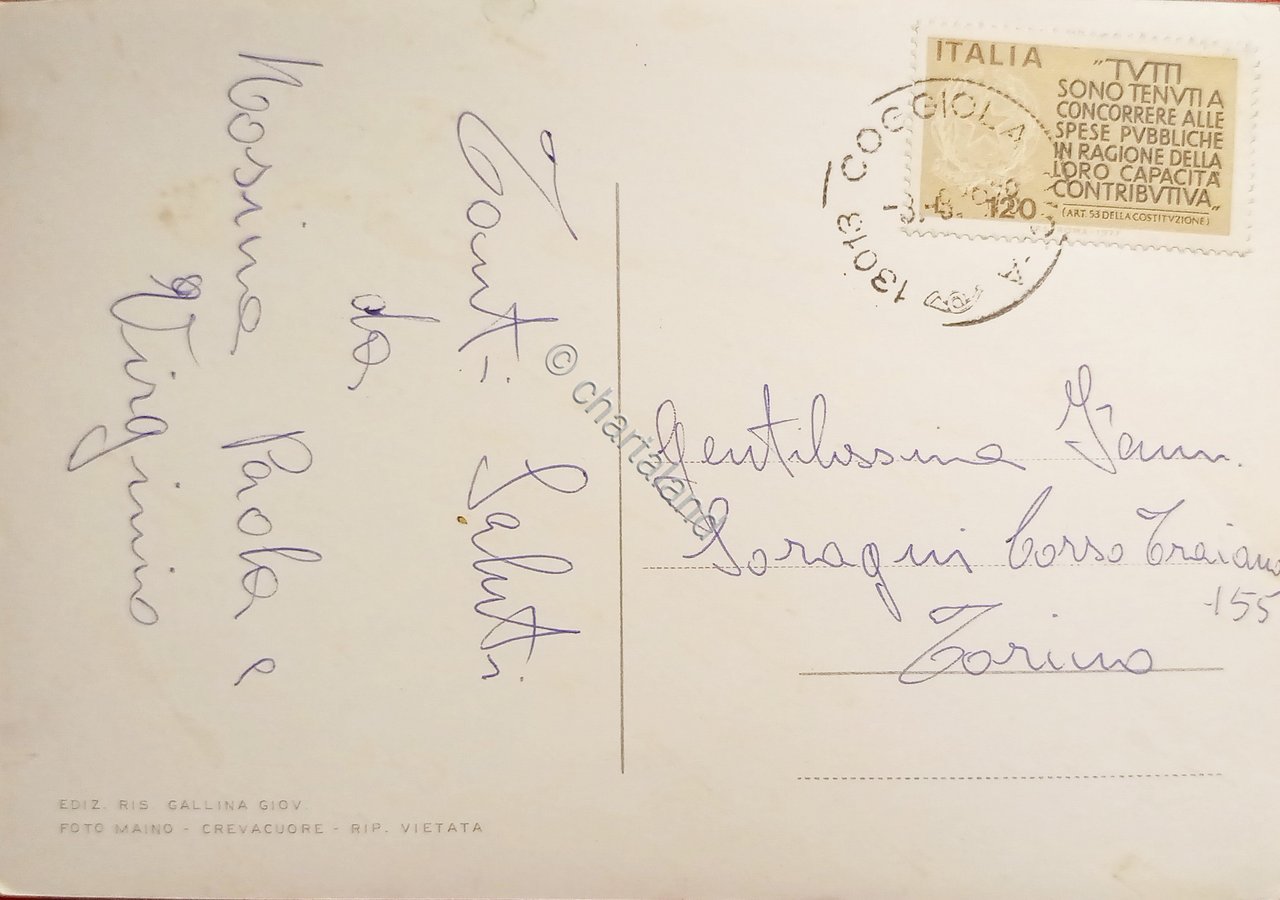 Tanti Saluti
da
Rosina Paola e
Virginio
ITALIA
"TVTTI
SONO TENVTI A
CONCORRERE ALLE
SPESE PVBBLICHE
IN RAGIONE DELLA
LORO CAPACITÀ
CONTRIBVTIVA"
(ART. 53 DELLA COSTITVZIONE)
120
13013 COGGIOLA
Gentilissima Fam.
Soragni Corso Traiano
155
Torino
© chartaland
EDIZ. RIS. GALLINA GIOV.
FOTO MAINO - CREVACUORE - RIP. VIETATA